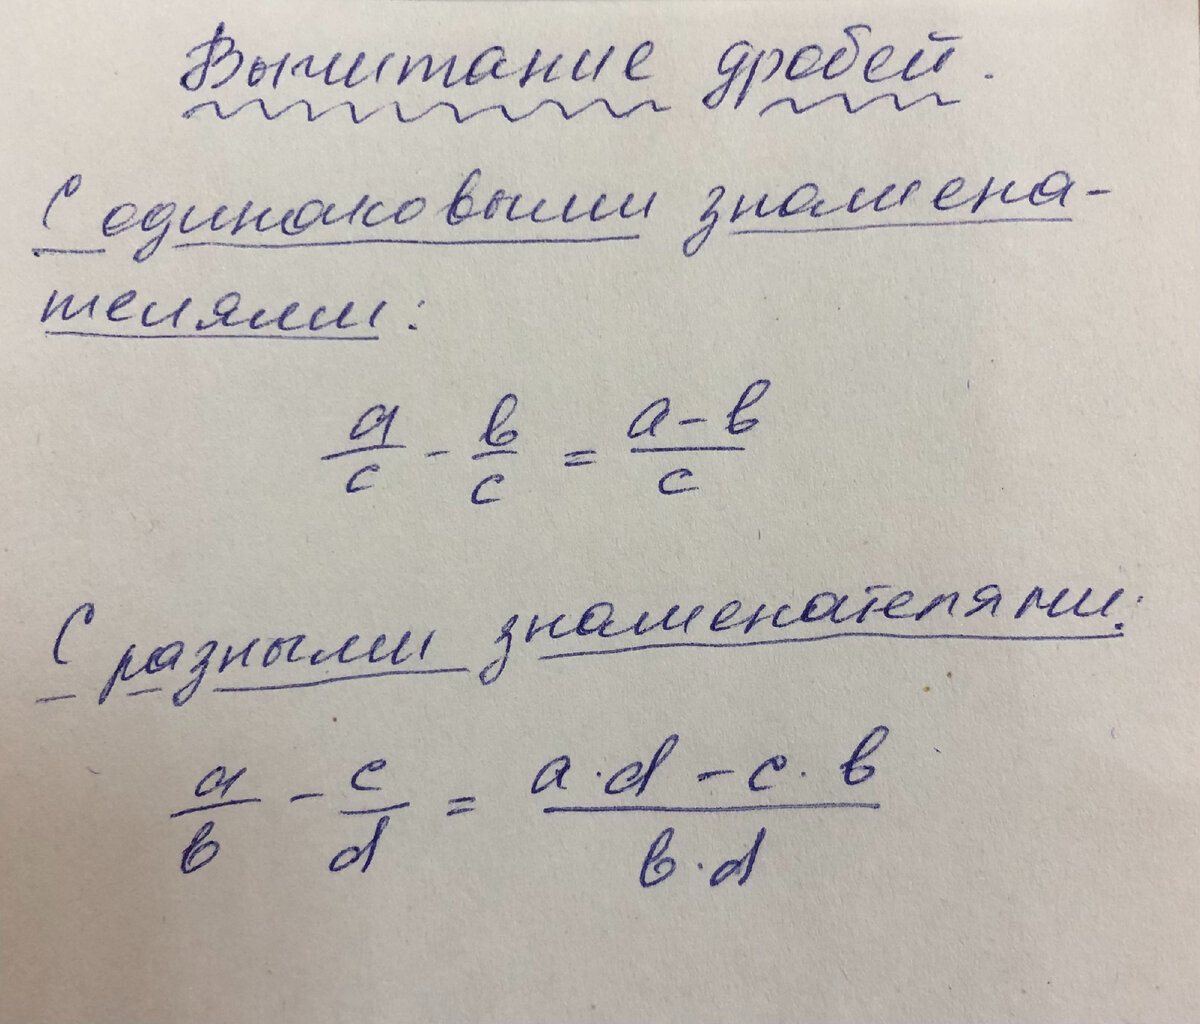 Вычитание дробей.
С одинаковыми знамена-
телями:
a/c - b/c = a-b/c
С разными знаменателями:
a/b - c/d = a·d - c·b/b·d